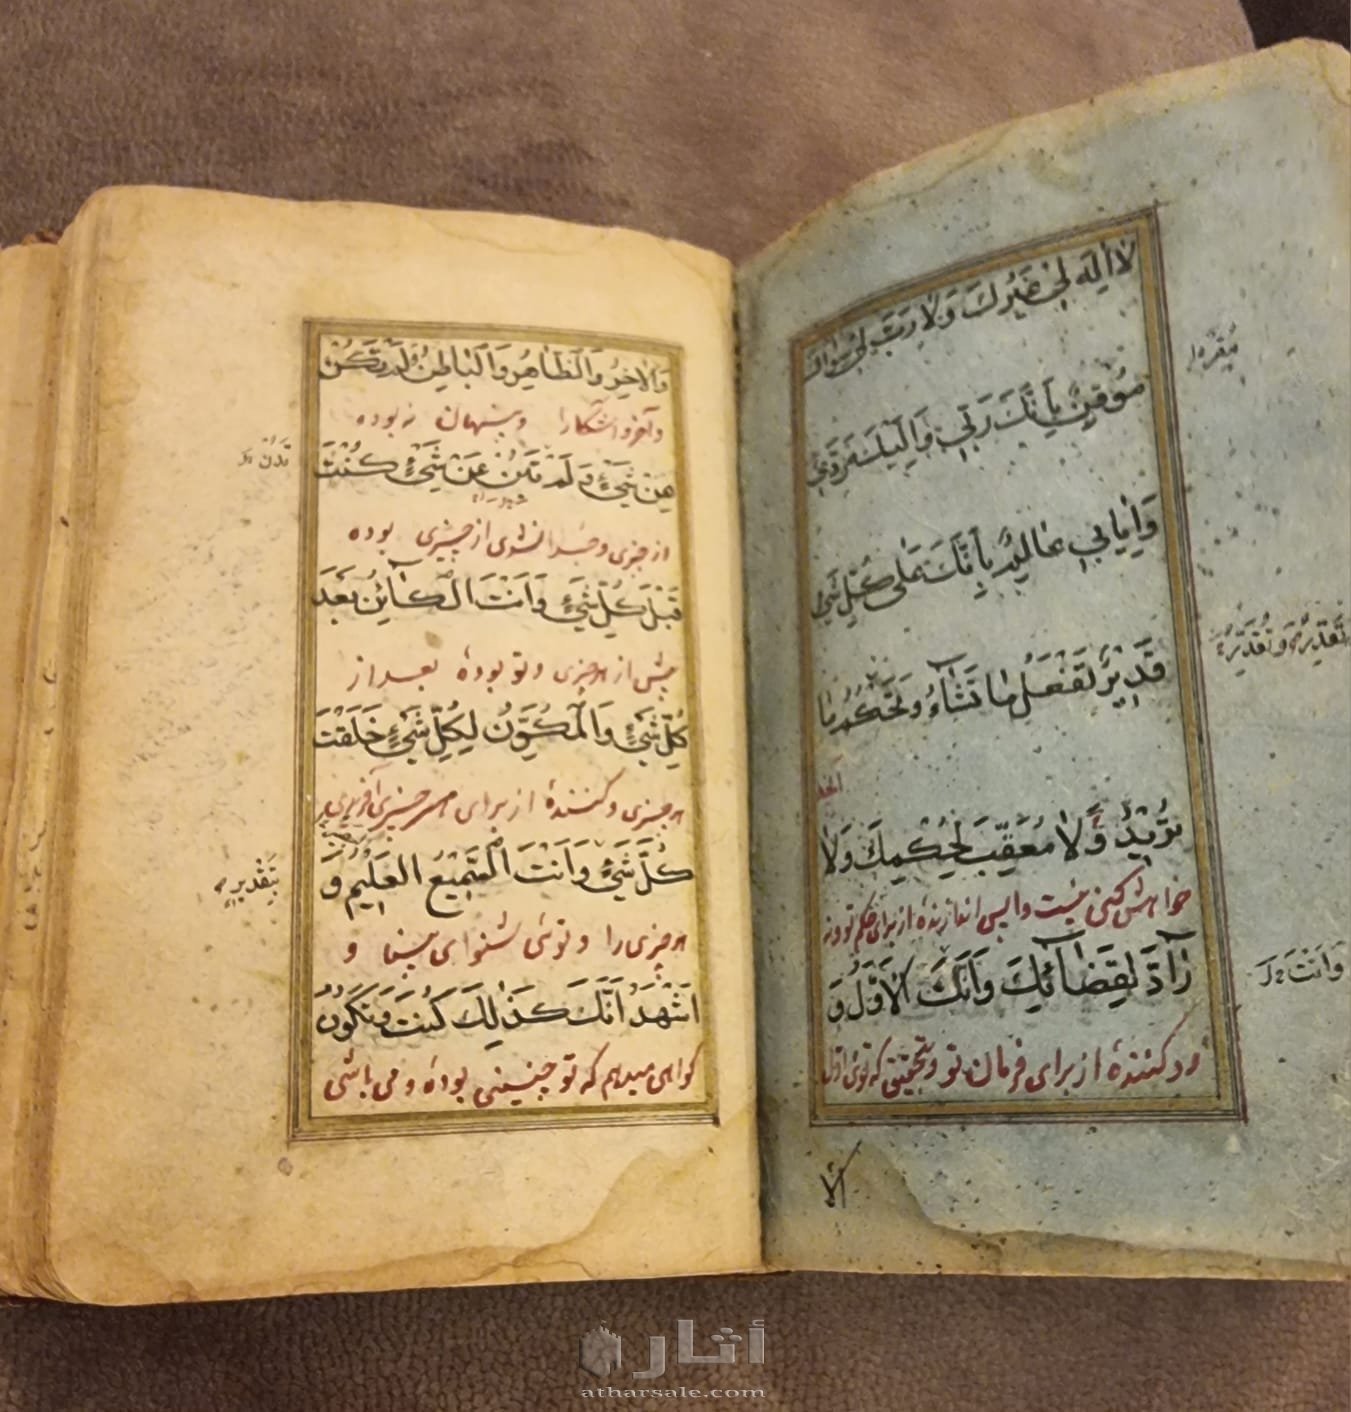 لا اِلهَ لي غَيْرُكَ وَلا رَبَّ لي سِواكَ
مُوقِنٌ بِأَنَّكَ رَبّي وَاِلَيْكَ مَرَدّي
وَاِيابي عالِمٌ بِأَنَّكَ عَلى كُلِّ شَيْءٍ
قَديرٌ تَفْعَلُ ما تَشاءُ وَتَحْكُمُ ما
تُريدُ وَلا مُعَقِّبَ لِحُكْمِكَ وَلا
خواهش کنی نیست واپس اندازنده از برای حکم تو ونه
رادَّ لِقَضائِكَ وَاَنَّكَ الْاَوَّلُ وَ
رد کننده از برای فرمان تو وبتحقیق که توئی اول
وَاَنْتَ
وَالْاخِرُ وَالظّاهِرُ وَالْباطِنُ لَمْ تَكُنْ
وآخر وآشکارا وپنهان نبوده
مِنْ شَيْءٍ وَلَمْ تَبِنْ عَنْ شَيْءٍ كُنْتَ
از چیزی وجدا نشدی از چیزی بوده
قَبْلَ كُلِّ شَيْءٍ وَاَنْتَ الْكائِنُ بَعْدَ
پیش از هر چیزی وتو بودهٔ بعد از
كُلِّ شَيْءٍ وَالْمُكَوِّنُ لِكُلِّ شَيْءٍ خَلَقْتَ
هر چیزی وکنندهٔ از برای هر چیزی آفریدی
كُلَّ شَيْءٍ وَاَنْتَ السَّميعُ الْعَليمُ وَ
هر چیزی را وتوئی شنوای بینا و
بِتَقْديرٍ
اَشْهَدُ اَنَّكَ كَذلِكَ كُنْتَ وَتَكُونُ
گواهی میدهم که تو چنینی بودهٔ ومی باشی
أثار
atharsale.com